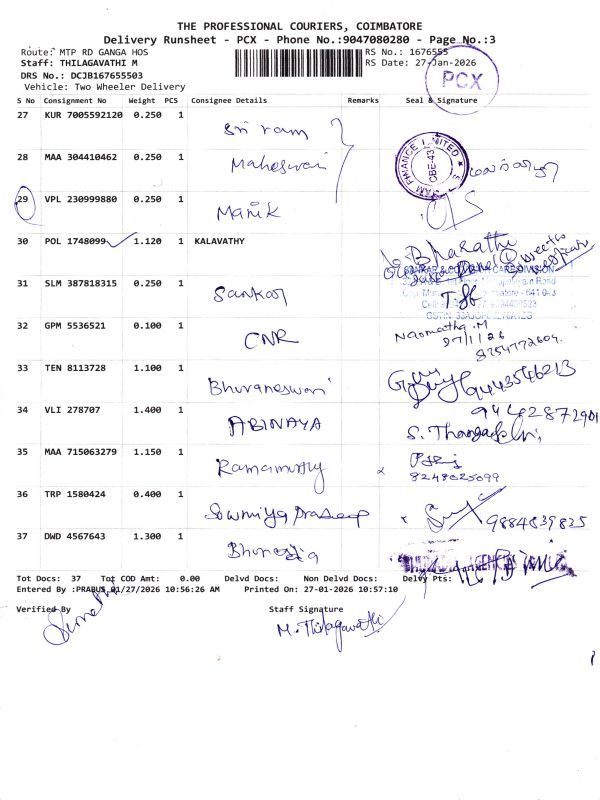 THE PROFESSIONAL COURIERS, COIMBATORE
Delivery Runsheet - PCX - Phone No.:9047080280 - Page No.:3
Route: MTP RD GANGA HOS
RS No.: 1676555
Staff: THILAGAVATHI M
RS Date: 27-Jan-2026
PCX
DRS No.: DCJB167655503
Vehicle: Two Wheeler Delivery
S No Consignment No Weight PCS Consignee Details Remarks Seal & Signature
27 KUR 7005592120 0.250 1 Sri ram
28 MAA 304410462 0.250 1 Maheswari
FINANCE LIMITED CBE-43
29 VPL 230999880 0.250 1 Manik
30 POL 1748099 1.120 1 KALAVATHY
Bharathi
31 SLM 387818315 0.250 1 Sankar
32 GPM 5536521 0.100 1 CNR
27/1/26
8754772604
33 TEN 8113728 1.100 1 Bhuvaneswari
9443546213
34 VLI 278707 1.400 1 ABINAYA
9442872901
35 MAA 715063279 1.150 1 Ramamurthy
8248025099
36 TRP 1580424 0.400 1 Sowmiya Pradeep
9884839825
37 DWD 4567643 1.300 1
Tot Docs: 37 Tot COD Amt: 0.00 Delvd Docs: Non Delvd Docs: Delvy Pts:
Entered By :PRABUS 01/27/2026 10:56:26 AM Printed On: 27-01-2026 10:57:10
Verified By Staff Signature
M. Thilagavathi